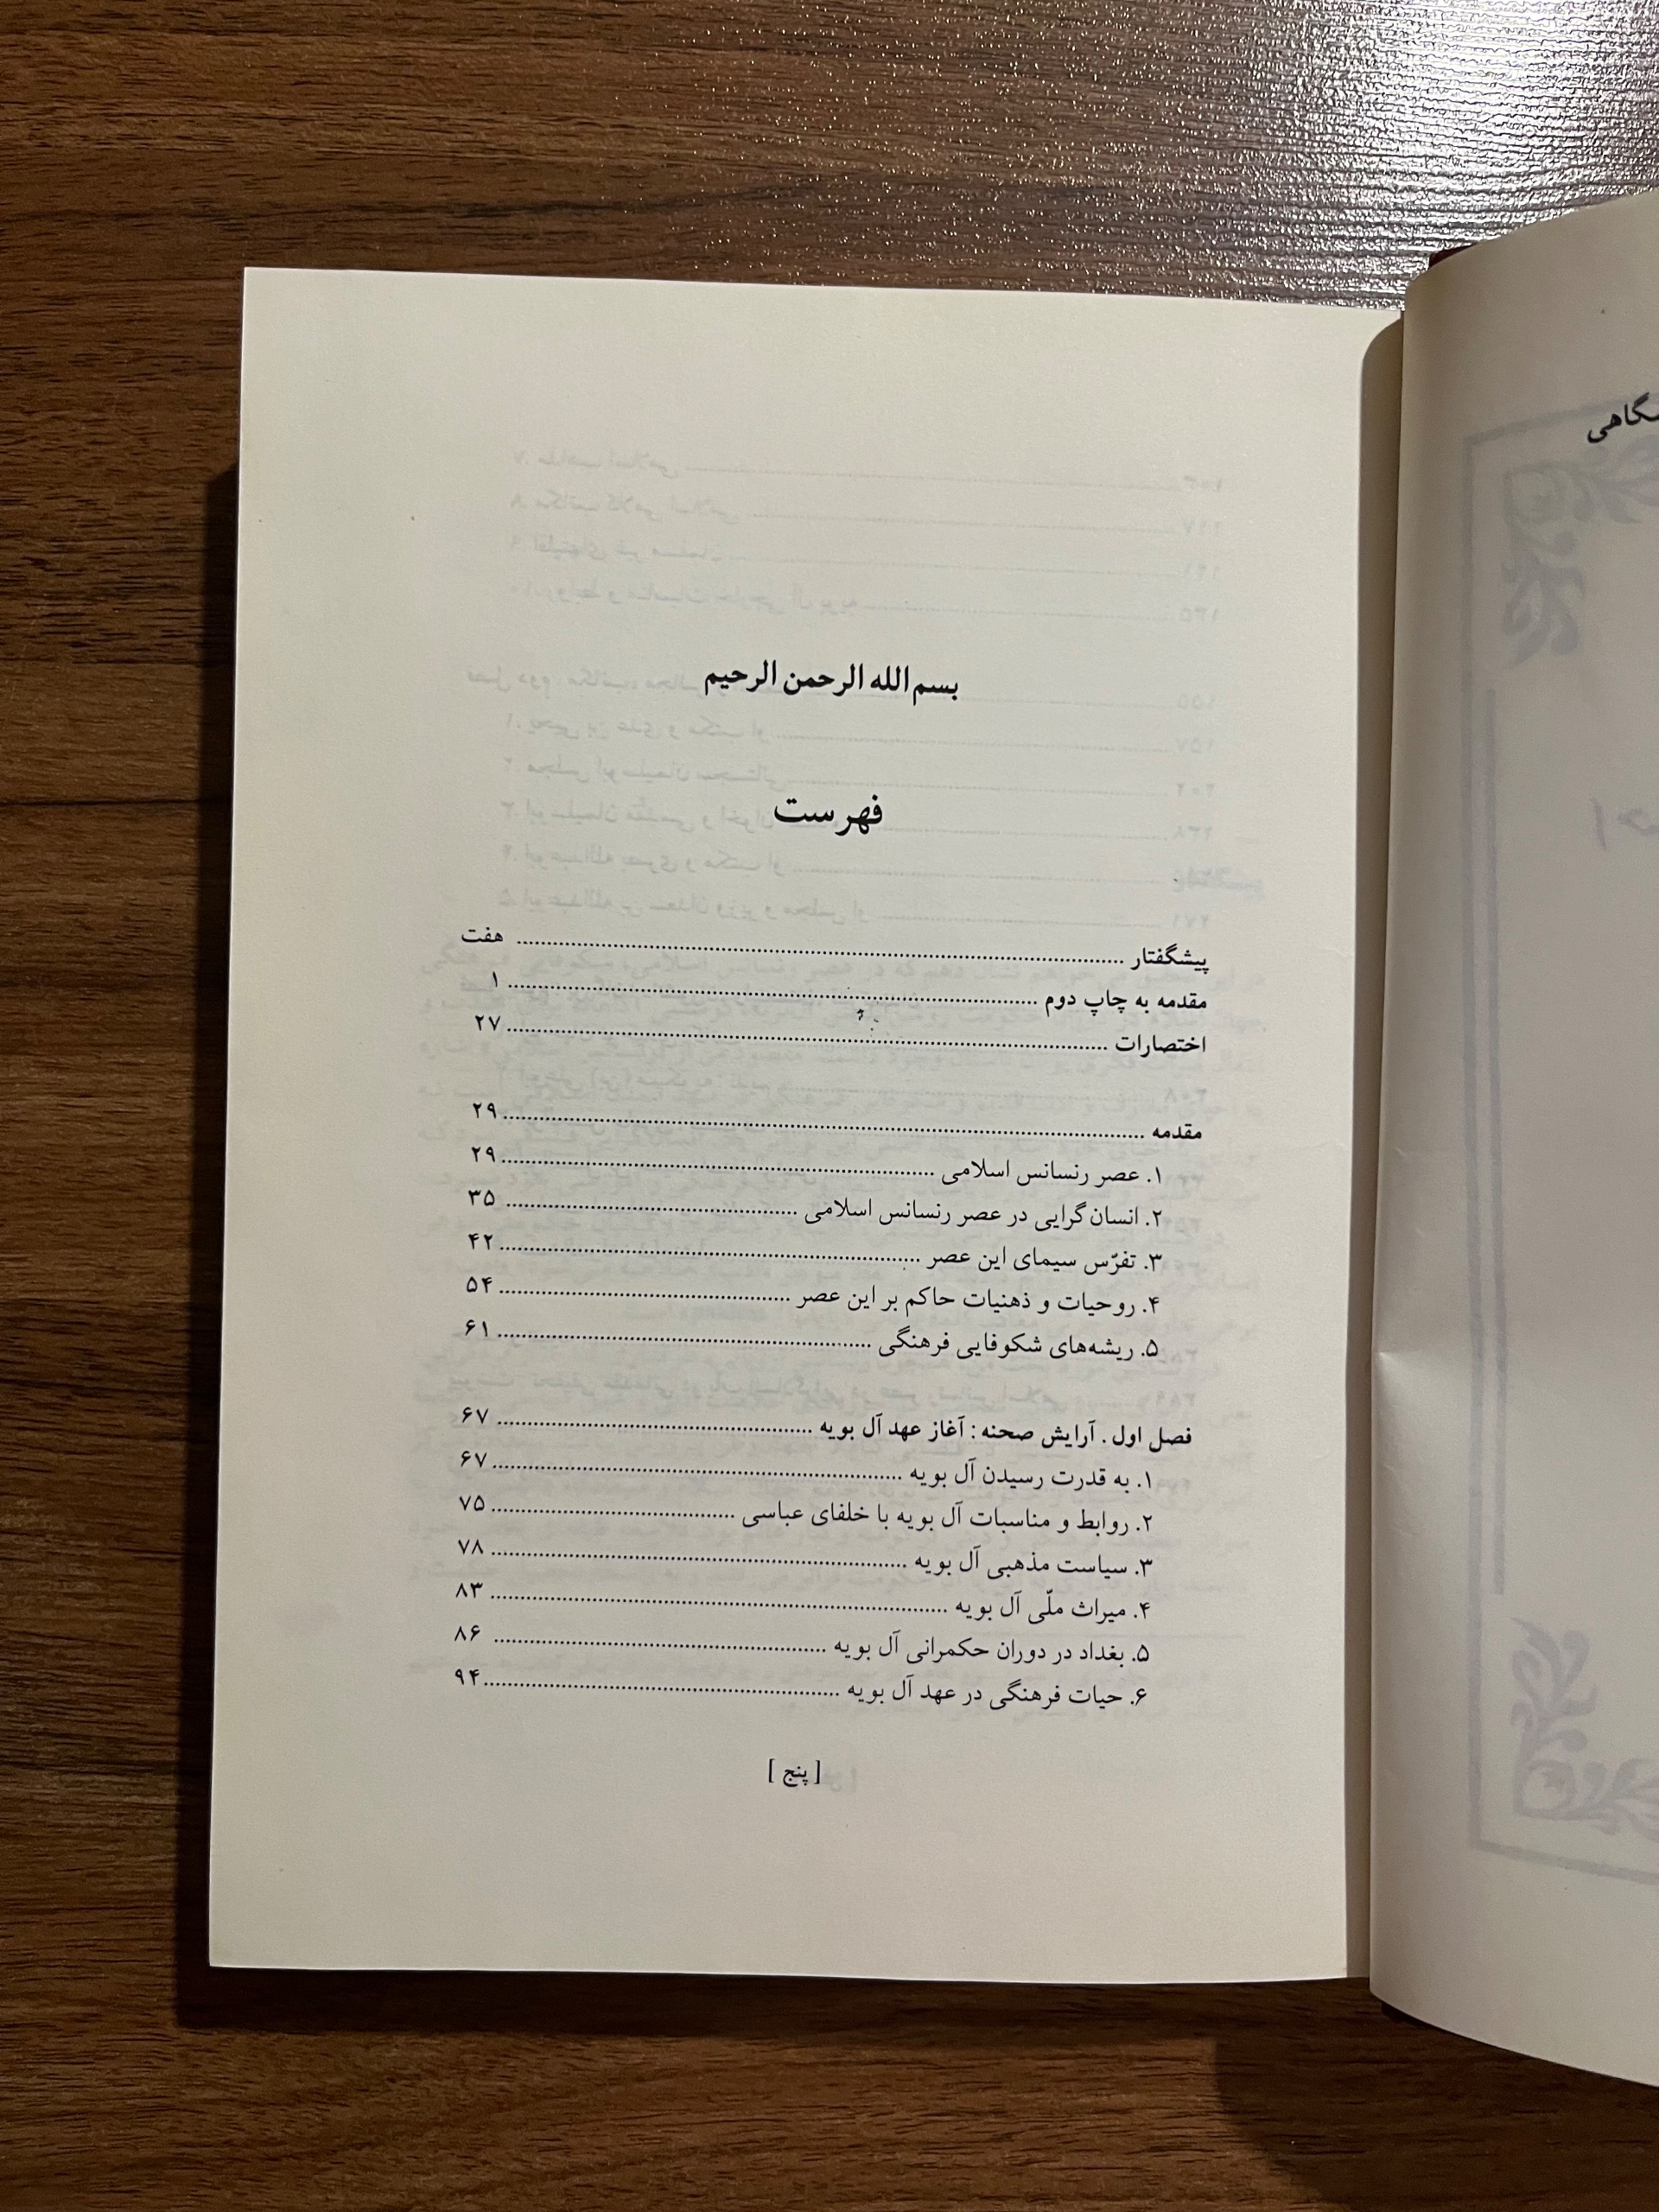 بسم الله الرحمن الرحیم
فهرست
پیشگفتار ........ هفت
مقدمه به چاپ دوم ........ ۱
اختصارات ........ ۲۷
مقدمه ........ ۲۹
۱. عصر رنسانس اسلامی ........ ۲۹
۲. انسان‌گرایی در عصر رنسانس اسلامی ........ ۳۵
۳. تفرّس سیمای این عصر ........ ۴۲
۴. روحیات و ذهنیات حاکم بر این عصر ........ ۵۴
۵. ریشه‌های شکوفایی فرهنگی ........ ۶۱
فصل اول. آرایش صحنه: آغاز عهد آل بویه ........ ۶۷
۱. به قدرت رسیدن آل بویه ........ ۶۷
۲. روابط و مناسبات آل بویه با خلفای عباسی ........ ۷۵
۳. سیاست مذهبی آل بویه ........ ۷۸
۴. میراث ملّی آل بویه ........ ۸۳
۵. بغداد در دوران حکمرانی آل بویه ........ ۸۶
۶. حیات فرهنگی در عهد آل بویه ........ ۹۴
[ پنج ]